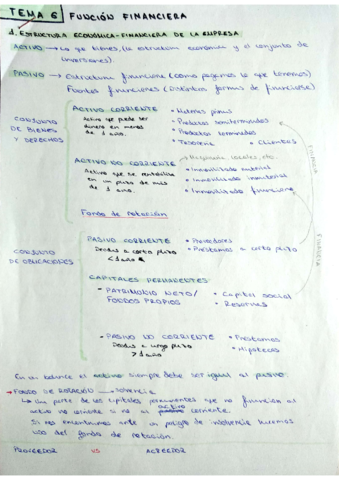 TEMA 6 FUNCIÓN FINANCIERA
1. ESTRUCTURA ECONÓMICA-FINANCIERA DE LA EMPRESA
ACTIVO → Lo que tienes, (la estructura económica y el conjunto de
inversiones).
PASIVO → Estructura financiera (como pagamos lo que tenemos)
Fuentes financieras (distintas formas de financiarse)
CONJUNTO
DE BIENES
Y DERECHOS
ACTIVO CORRIENTE
Activo que puede ser
dinero en menos
de 1 año.
• Materias primas
• Productos semiterminados
• Productos terminados
• Tesorería • Clientes
ACTIVO NO CORRIENTE
Activo que se rentabiliza
en un plazo de más
de 1 año.
→ Maquinaria, locales, etc.
• Inmovilizado material
• Inmovilizado inmaterial
• Inmovilizado financiero
Fondo de rotación
CONJUNTO
DE OBLIGACIONES
PASIVO CORRIENTE
Deudas a corto plazo
< 1 año
• Proveedores
• Préstamos a corto plazo
CAPITALES PERMANENTES
• PATRIMONIO NETO/
FONDOS PROPIOS
• Capital social
• Reservas
• PASIVO NO CORRIENTE
Deudas a largo plazo
> 1 año
• Préstamos
• Hipotecas
Financia
En un balance el activo siempre debe ser igual al pasivo.
→ FONDO DE ROTACIÓN → solvencia
↳ Una parte de los capitales permanentes que no financian al
activo no corriente si no al activo corriente.
Si nos encontramos ante un peligro de insolvencia haremos
uso del fondo de rotación.
PROVEEDOR VS ACREEDOR